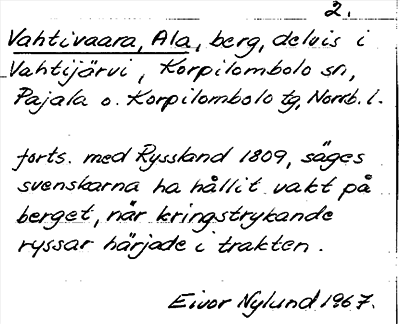 2.
Vahtivaara, Ala, berg, delvis i
Vahtijärvi, Korpilombolo sn,
Pajala o. Korpilombolo tg, Norrb. l.
forts. med Ryssland 1809, säges
svenskarna ha hållit vakt på
berget, när kringstrykande
ryssar härjade i trakten.
Eivor Nylund 1967.